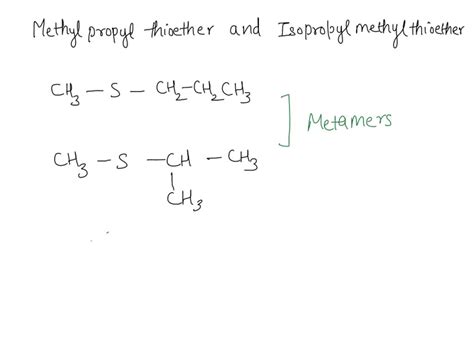 Methyl propyl thioether and Isopropyl methyl thioether
CH3 - S - CH2-CH2CH3
Metamers
CH3 - S - CH - CH3
CH3